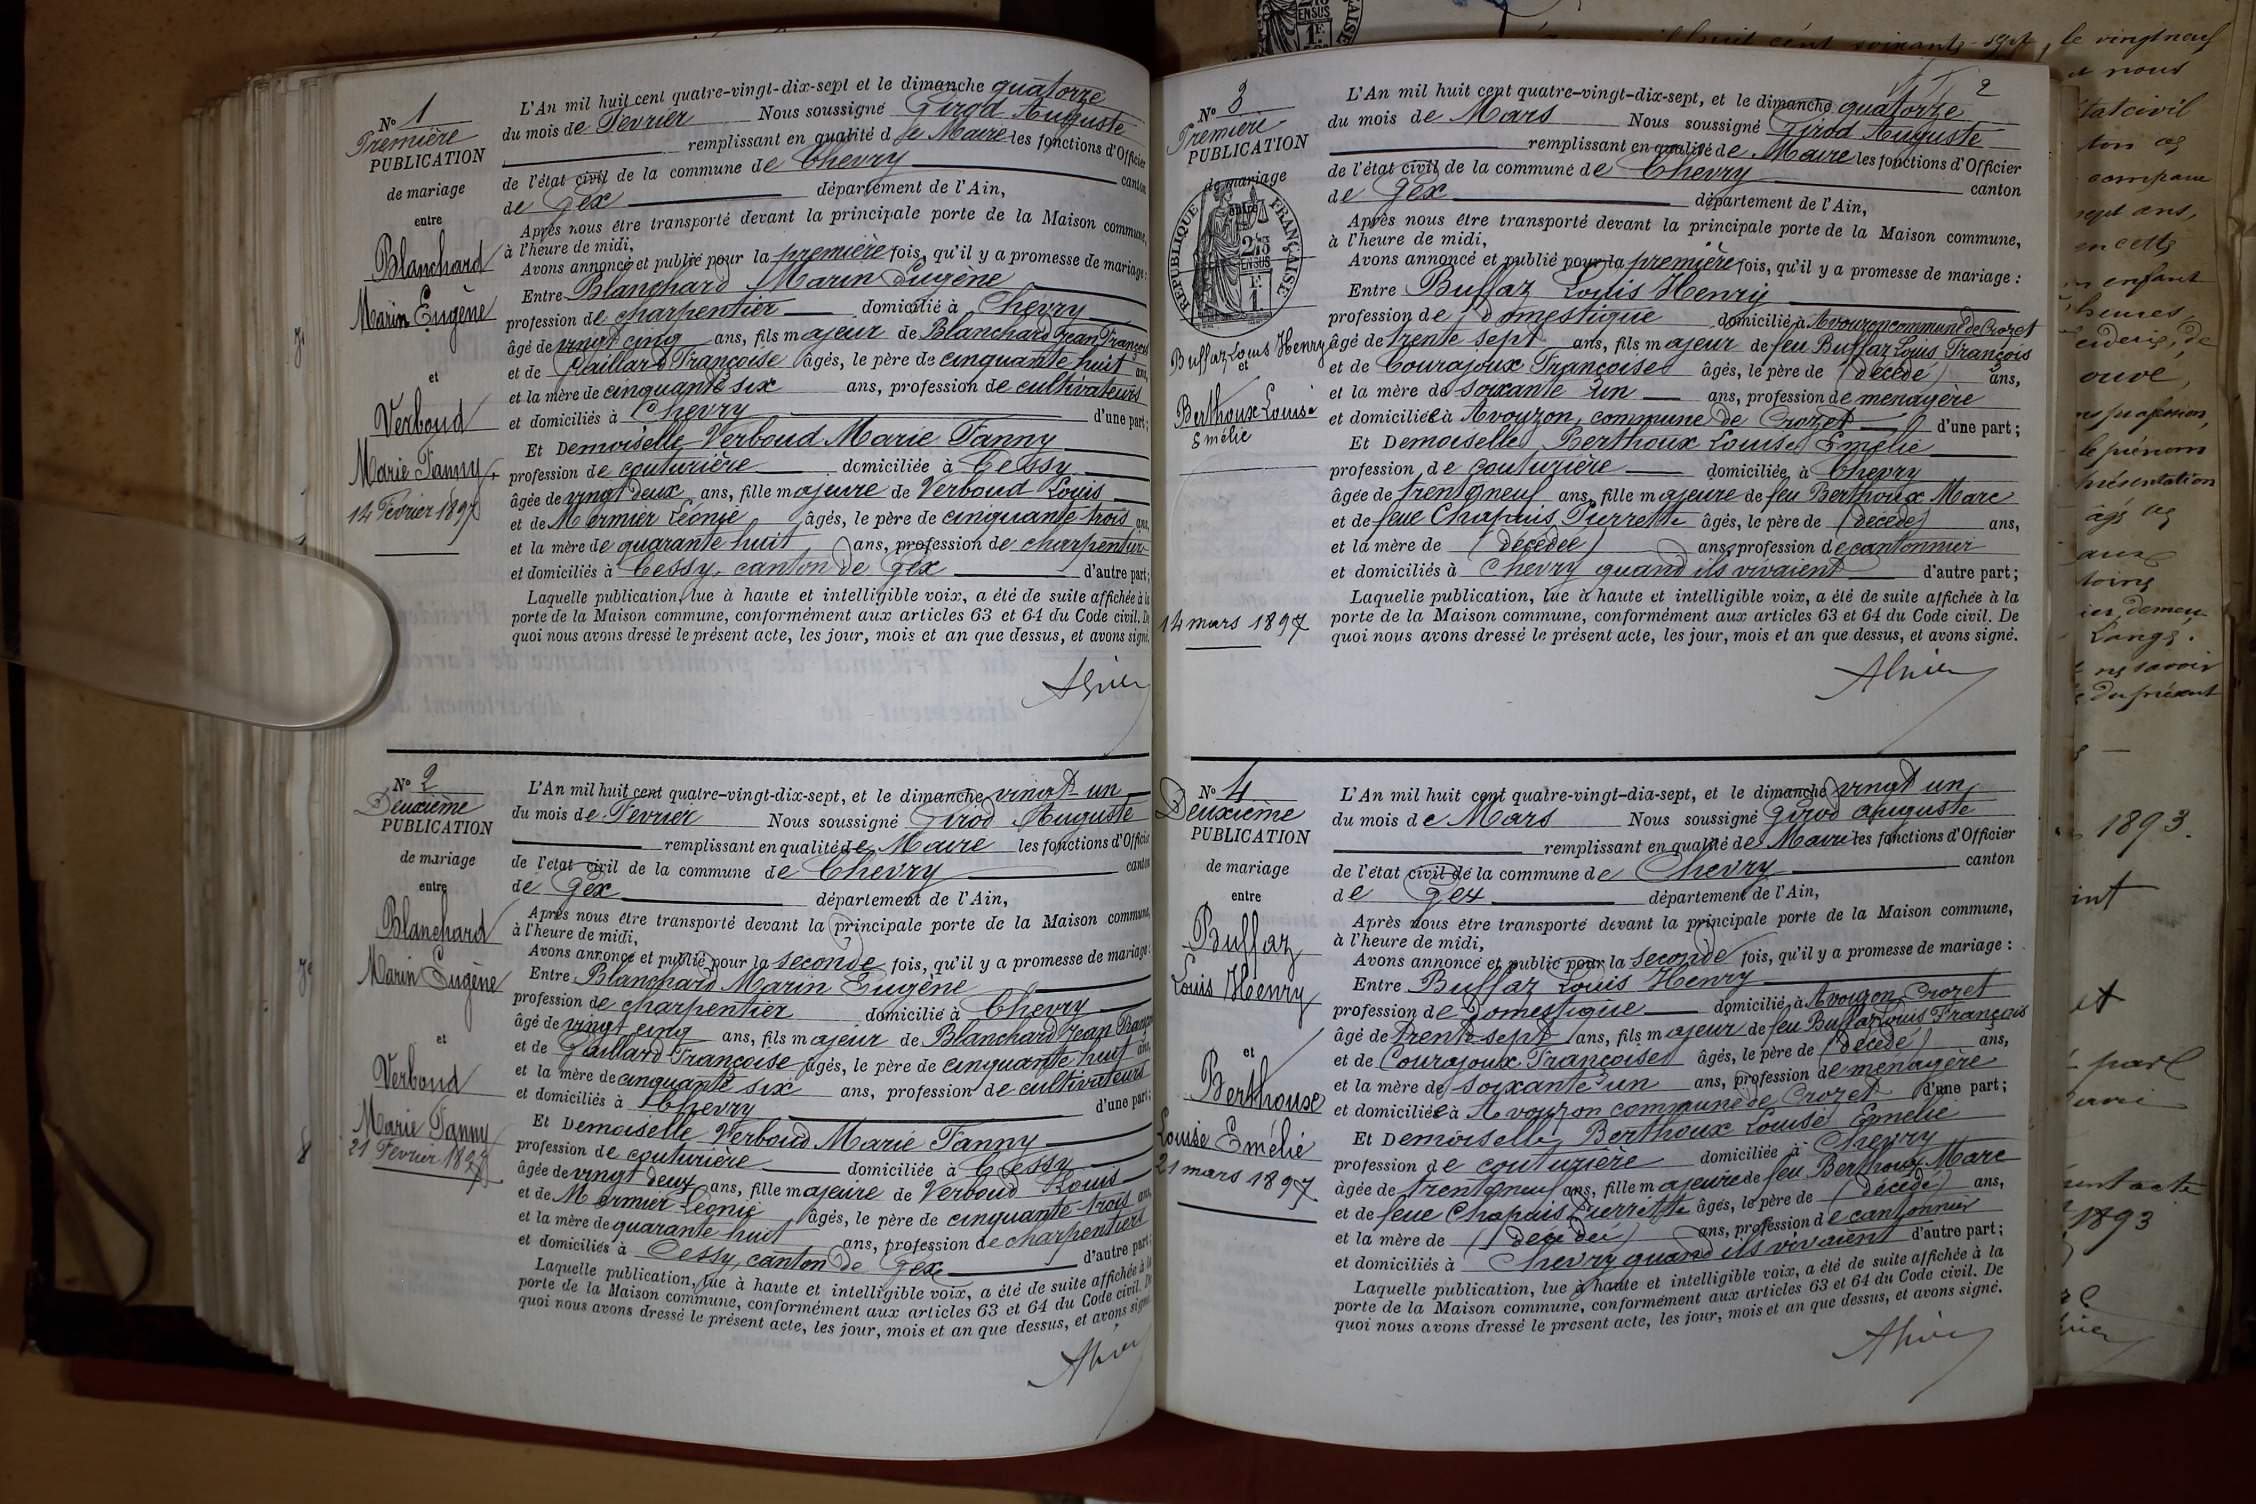 N° 1
Première
PUBLICATION
de mariage
entre
Blanchard
Marin Eugène
et
Verboud
Marie Fanny
14 Février 1897
L'An mil huit cent quatre-vingt-dix-sept et le dimanche quatorze
du mois de Février Nous soussigné Girod Auguste
remplissant en qualité de Maire les fonctions d'Officier
de l'état civil de la commune de Chevry canton
de Gex département de l'Ain,
Après nous être transporté devant la principale porte de la Maison commune,
à l'heure de midi,
Avons annoncé et publié pour la première fois, qu'il y a promesse de mariage :
Entre Blanchard Marin Eugène
profession de charpentier domicilié à Chevry
âgé de vingt cinq ans, fils majeur de Blanchard Jean François
et de Gaillard Françoise âgés, le père de cinquante huit ans,
et la mère de cinquante six ans, profession de cultivateurs
et domiciliés à Chevry d'une part ;
Et Demoiselle Verboud Marie Fanny
profession de couturière domiciliée à Cessy
âgée de vingt deux ans, fille majeure de Verboud Louis
et de Mermier Léonie âgés, le père de cinquante trois ans,
et la mère de quarante huit ans, profession de charpentier
et domiciliés à Cessy, canton de Gex d'autre part ;
Laquelle publication, lue à haute et intelligible voix, a été de suite affichée à la
porte de la Maison commune, conformément aux articles 63 et 64 du Code civil. De
quoi nous avons dressé le présent acte, les jour, mois et an que dessus, et avons signé.
N° 2
Deuxième
PUBLICATION
de mariage
entre
Blanchard
Marin Eugène
et
Verboud
Marie Fanny
21 Février 1897
L'An mil huit cent quatre-vingt-dix-sept, et le dimanche vingt un
du mois de Février Nous soussigné Girod Auguste
remplissant en qualité de Maire les fonctions d'Officier
de l'état civil de la commune de Chevry canton
de Gex département de l'Ain,
Après nous être transporté devant la principale porte de la Maison commune,
à l'heure de midi,
Avons annoncé et publié pour la seconde fois, qu'il y a promesse de mariage :
Entre Blanchard Marin Eugène
profession de charpentier domicilié à Chevry
âgé de vingt cinq ans, fils majeur de Blanchard Jean François
et de Gaillard Françoise âgés, le père de cinquante huit ans,
et la mère de cinquante six ans, profession de cultivateurs
et domiciliés à Chevry d'une part ;
Et Demoiselle Verboud Marie Fanny
profession de couturière domiciliée à Cessy
âgée de vingt deux ans, fille majeure de Verboud Louis
et de Mermier Léonie âgés, le père de cinquante trois ans,
et la mère de quarante huit ans, profession de charpentiers
et domiciliés à Cessy, canton de Gex d'autre part ;
Laquelle publication, lue à haute et intelligible voix, a été de suite affichée à la
porte de la Maison commune, conformément aux articles 63 et 64 du Code civil. De
quoi nous avons dressé le présent acte, les jour, mois et an que dessus, et avons signé.
2
N° 3
Première
PUBLICATION
de mariage
entre
RÉPUBLIQUE FRANÇAISE
Buffaz Louis Henry
et
Berthoux Louise
Emélie
14 mars 1897
L'An mil huit cent quatre-vingt-dix-sept, et le dimanche quatorze
du mois de Mars Nous soussigné Girod Auguste
remplissant en qualité de Maire les fonctions d'Officier
de l'état civil de la commune de Chevry canton
de Gex département de l'Ain,
Après nous être transporté devant la principale porte de la Maison commune,
à l'heure de midi,
Avons annoncé et publié pour la première fois, qu'il y a promesse de mariage :
Entre Buffaz Louis Henry
profession de domestique domicilié à Avouzon commune de Crozet
âgé de trente sept ans, fils majeur de feu Buffaz Louis François
et de Courajoux Françoise âgés, le père de (décédé) ans,
et la mère de soixante un ans, profession de ménagère
et domiciliée à Avouzon, commune de Crozet d'une part ;
Et Demoiselle Berthoux Louise Emélie
profession de couturière domiciliée à Chevry
âgée de trente neuf ans, fille majeure de feu Berthoux Marc
et de feue Chapuis Pierrette âgés, le père de (décédé) ans,
et la mère de (décédée) ans, profession de cantonnier
et domiciliés à Chevry quand ils vivaient d'autre part ;
Laquelle publication, lue à haute et intelligible voix, a été de suite affichée à la
porte de la Maison commune, conformément aux articles 63 et 64 du Code civil. De
quoi nous avons dressé le présent acte, les jour, mois et an que dessus, et avons signé.
N° 4
Deuxième
PUBLICATION
de mariage
entre
Buffaz
Louis Henry
et
Berthoux
Louise Emélie
21 mars 1897
L'An mil huit cent quatre-vingt-dix-sept, et le dimanche vingt un
du mois de Mars Nous soussigné Girod Auguste
remplissant en qualité de Maire les fonctions d'Officier
de l'état civil de la commune de Chevry canton
de Gex département de l'Ain,
Après nous être transporté devant la principale porte de la Maison commune,
à l'heure de midi,
Avons annoncé et publié pour la seconde fois, qu'il y a promesse de mariage :
Entre Buffaz Louis Henry
profession de domestique domicilié à Avouzon Crozet
âgé de trente sept ans, fils majeur de feu Buffaz Louis François
et de Courajoux Françoise âgés, le père de (décédé) ans,
et la mère de soixante un ans, profession de ménagère
et domiciliée à Avouzon commune de Crozet d'une part ;
Et Demoiselle Berthoux Louise Emélie
profession de couturière domiciliée à Chevry
âgée de trente neuf ans, fille majeure de feu Berthoux Marc
et de feue Chapuis Pierrette âgés, le père de (décédé) ans,
et la mère de (décédée) ans, profession de cantonnier
et domiciliés à Chevry quand ils vivaient d'autre part ;
Laquelle publication, lue à haute et intelligible voix, a été de suite affichée à la
porte de la Maison commune, conformément aux articles 63 et 64 du Code civil. De
quoi nous avons dressé le présent acte, les jour, mois et an que dessus, et avons signé.
le vingt neuf
nous
sept ans,
enfant
profession,
le prénom
présentation
savoir
du présent
1893.
acte
1893